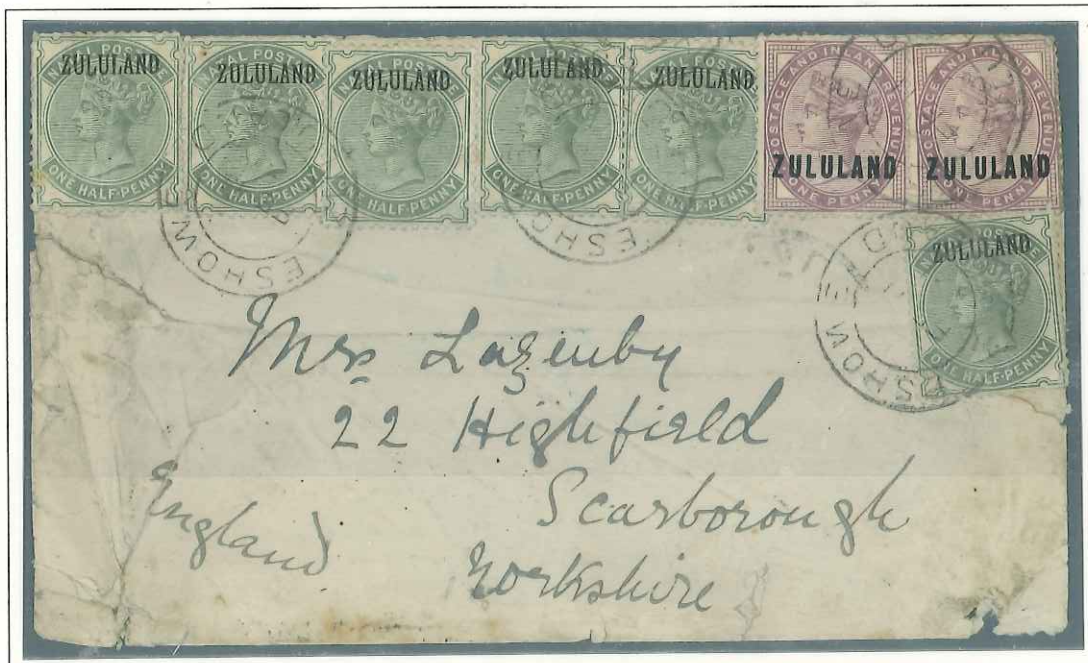 NATAL POSTAGE
ZULULAND
ONE HALF-PENNY
NATAL POSTAGE
ZULULAND
ONE HALF-PENNY
NATAL POSTAGE
ZULULAND
ONE HALF-PENNY
NATAL POSTAGE
ZULULAND
ONE HALF-PENNY
NATAL POSTAGE
ZULULAND
ONE HALF-PENNY
POSTAGE AND INLAND REVENUE
ZULULAND
ONE PENNY
POSTAGE AND INLAND REVENUE
ZULULAND
ONE PENNY
NATAL POSTAGE
ZULULAND
ONE HALF-PENNY
ESHOWE
ESHOWE
ESHOWE
Mrs Lazenby
22 Highfield
Scarborough
Yorkshire
England